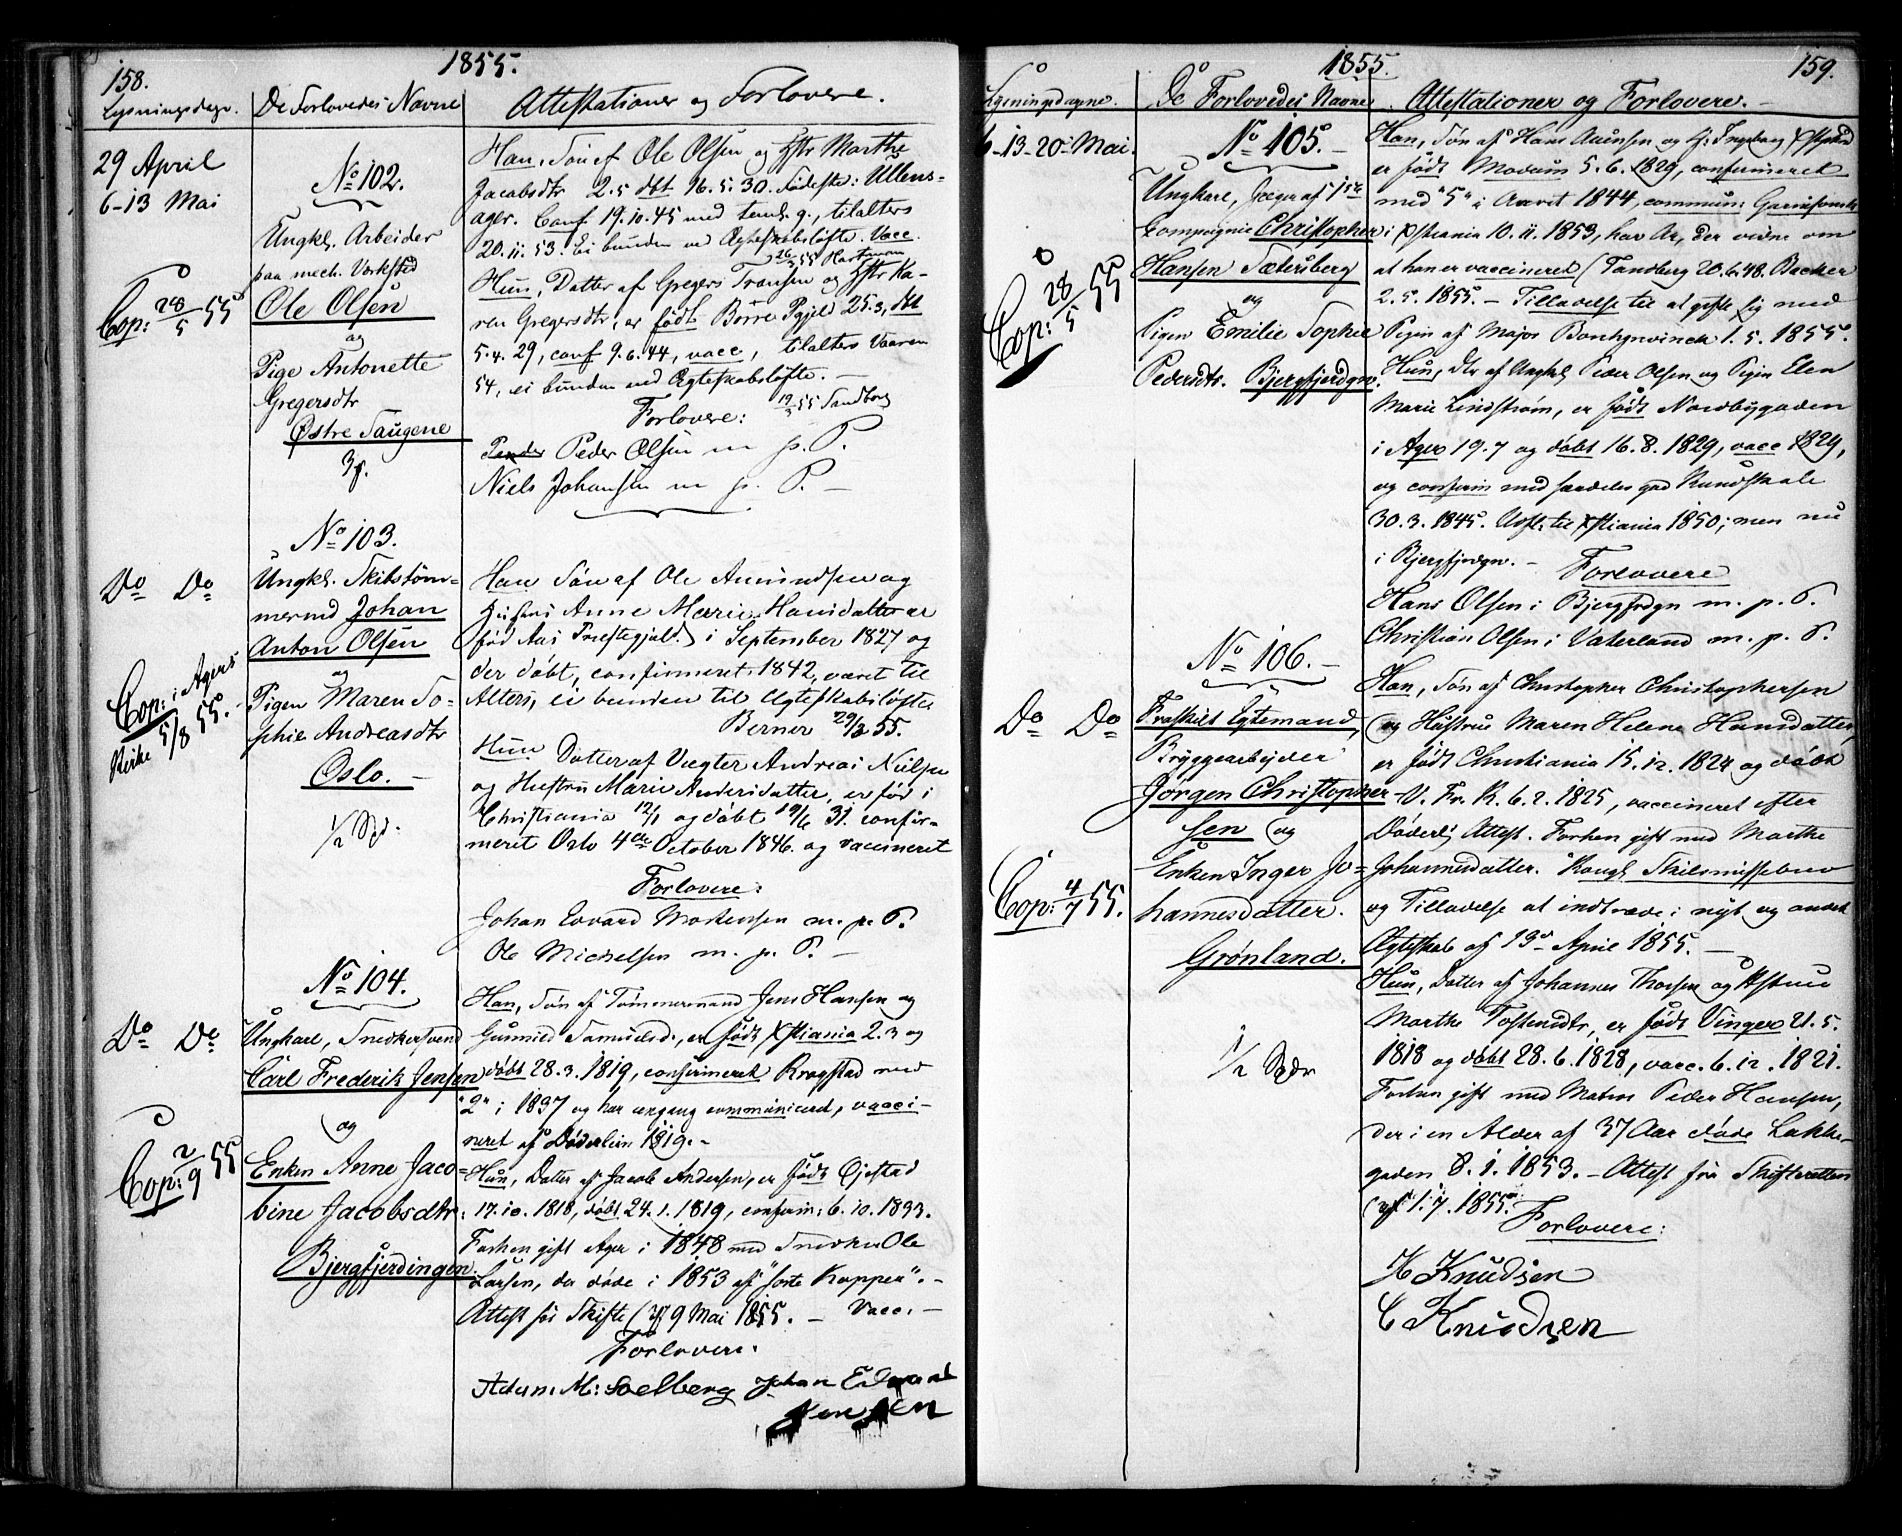 158.
1855.
Lysningsdage.
De Forlovedes Navne
Attestationer og Forlovere.
29 April
6-13 Mai
Cop: 28/5 55
No 102.
Ungkl. Arbeider
paa mech. Værksted
Ole Olsen
og
Pige Antonette
Gregersdtr
Østre Saugene
Han, Søn af Ole Olsen og Hstr Marthe
Jacobsdtr 2.5 dbt 16.5.30. Fødested: Ullens-
ager. Conf 19.10.45 med tem. g., tilalters
20.11.53. Ei bunden ved Ægteskabsløfte. Vacc.
Hun, Datter af Gregers Transen og Hstr Ka-
ren Gregersdtr, er født Borre Pgjeld 25.3, dbt
5.4.29, conf 9.6.44, vacc, tilalters Vaaren
54, ei bunden ved Ægteskabsløfte. —
19/3 55 Sandborg
Forlovere:
Peder Olsen m. p. P.
Niels Johansen m. p. P. —
Do Do
Cop: i Agers
Kirke 5/8 55.
No 103.
Ungkl. Skibstøm-
mermd Johan
Anton Olsen
og
Pigen Maren So-
phie Andreasdtr
Oslo. —
1/2 Spd.
Han Søn af Ole Amundsen og
Hustru Anne Marie Hansdatter er
fød Aas Præstegjæld i September 1827 og
der døbt, confirmeret 1842, været til
Alters, ei bunden til Ægteskabsløfte
Berner 29/3 55.
Hun Datter af Vægter Andreas Nielsen
og Hustru Marie Andersdatter, er fød i
Christiania 12/1 og døbt 19/6 31. confir-
meret Oslo 4de October 1846. og vaccineret
Forlovere:
Johan Edvard Mortensen m. p. P.
Ole Michelsen m. p. P. —
Do Do
Cop: 2/9 55
No 104.
Ungkarl, Snedkersvend
Carl Frederik Jensen
og
Enken Anne Jaco-
bine Jacobsdtr.
Bjergfjerdingen.
Han, Søn af Tømmermand Jens Hansen og
Gunnild Samuelsd., er født Xstiania 2.3 og
døbt 28.3.1819, confirmeret Kragstad med
"2" i 1837 og har engang communiceret, vacci-
neret af Døderlein 1819. -
Hun, Datter af Jacob Andersen, er født Gjestad
17.10.1818, døbt 24.1.1819, confirm: 6.10.1833.
Forhen gift Ager i 1848 med Snedker Ole
Larsen, der døde i 1853 af "sorte Kopper". -
Attest for Skifte af 9 Mai 1855. — Vacc. —
Forlovere:
Adam M: Soelberg Johan Edvard
Jensen
159.
1855.
Lysningsdagene.
De Forlovedes Navne
Attestationer og Forlovere. —
6-13-20 Mai.
Cop: 28/5 55
No 105. —
Ungkarl, Jæger af 1ste
Compagnie Christopher
Hansen Sætersberg
og
Pigen Emilie Sophie
Pedersdtr. Bjergfjerdgn.
Han, Søn af Hans
er født Modum 5.6.1829, confirmeret
med "5" i Aaret 1844, commun: Garnisons
i Xstiania 10.11.1853, har Ar, der vidne om
at han er vaccineret (Tandberg 20.6.48. Becker
2.5.1855. — Tilladelse til at gifte sig med
Pigen af Major 1.5.1855.
Hun, dtr af Ungkl Peder Olsen og Pigen Elen
Marie Lindstrøm, er født Nordbygaden
i Ager 19.7 og døbt 16.8.1829, vacc 1829,
og confirm med særdeles god Kundskab
30.3.1845. Udfl. til Xstiania 1850; men nu
i Bjergfjrdgn. —
Forlovere
Hans Olsen i Bjergfrdgn m. p. P.
Christian Olsen i Vaterland m. p. P.
Do Do
Cop: 4/7 55.
No 106. —
Fraskilt Egtemand,
Bryggearbejder
Jørgen Christopher-
sen og
Enken Inger Jo-
hannesdatter.
Grønland.
1/2 Spdr
Han, Søn af Christopher Christophersen
og Hustrue Maren Helene Hansdatter,
er født Christiania 15.12.1824 og døbt
V. Fr. K. 6.2.1825, vaccineret efter
Døderl. Attest. Forhen gift med Marthe
Johannesdatter. Kongl Skilsmissebrev
og Tilladelse at indtræde i nyt og andet
Ægteskab af 13de April 1855. —
Hun, Datter af Johannes Thorsen og Hstrue
Marthe Tostensdtr, er født Vinger 21.5.
1818 og døbt 28.6.1828, vacc. 6.12.1821.
Forhen gift med Matros Peder Hansen,
der i en Alder af 37 Aar døde Lakke-
gaden 8.1.1853. — Attest fra Skifteretten
af 1.7.1855.
Forlovere:
H Knudsen
C Knudsen